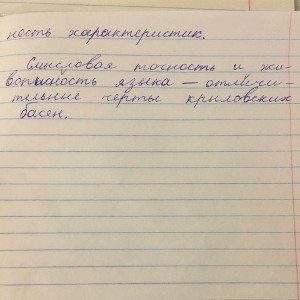 ность характеристик.
Смысловая точность и жи-
вописность языка – отличи-
тельные черты крыловских
басен.